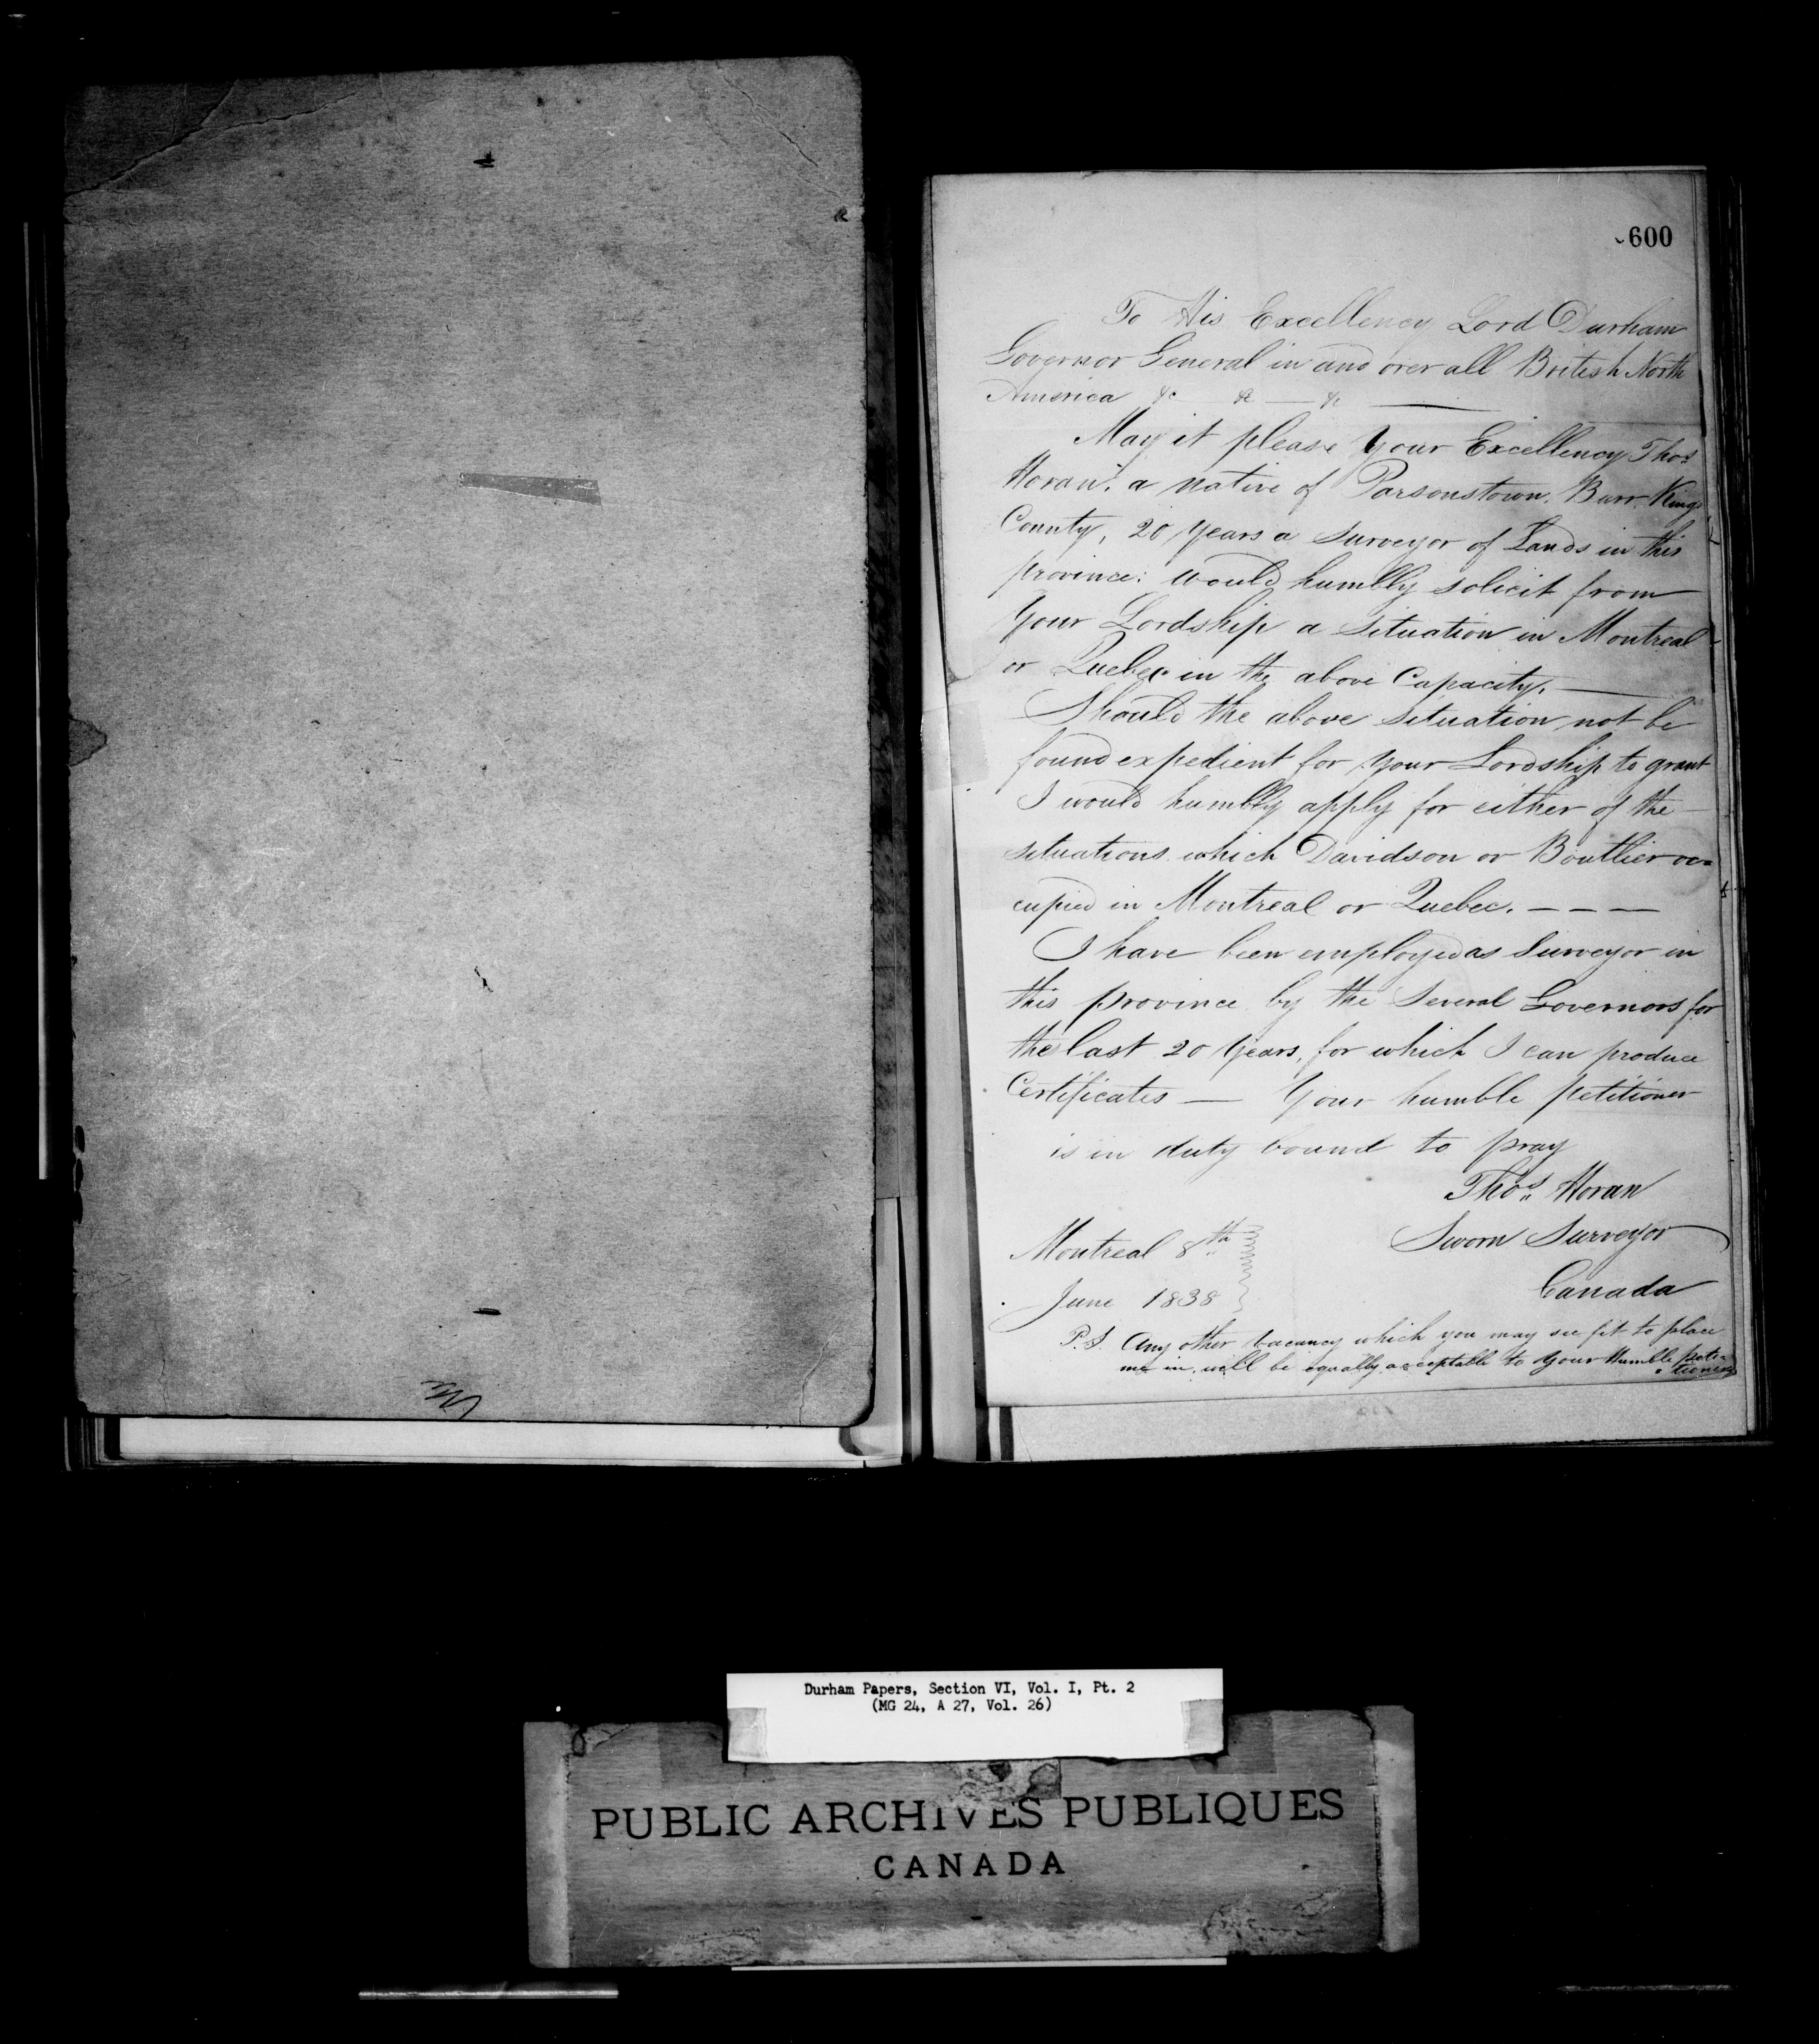 600
To His Excellency Lord Durham
Governor General in and over all British North
America &c &c — &c —
May it please Your Excellency Thos
Horan, a native of Parsonstown, Burr Kings
County, 20 Years a Surveyor of Lands in this
province; would humbly solicit from
Your Lordship a Situation in Montreal
or Quebec in the above Capacity. —
Should the above Situation not be
found expedient for your Lordship to grant
I would humbly apply for either of the
situations which Davidson or Bouthier oc=
cupied in Montreal or Quebec. — — —
I have been employed as Surveyor in
this province by the Several Governors for
the last 20 Years, for which I can produce
Certificates — Your humble petitioner
is in duty bound to pray
Thos Horan
Sworn Surveyor
Canada
Montreal 8th
June 1838
P.S. Any other vacancy which you may see fit to place
me in, will be equally acceptable to Your Humble peti=
=tioner
Durham Papers, Section VI, Vol. I, Pt. 2
(MG 24, A 27, Vol. 26)
PUBLIC ARCHIVES PUBLIQUES
CANADA